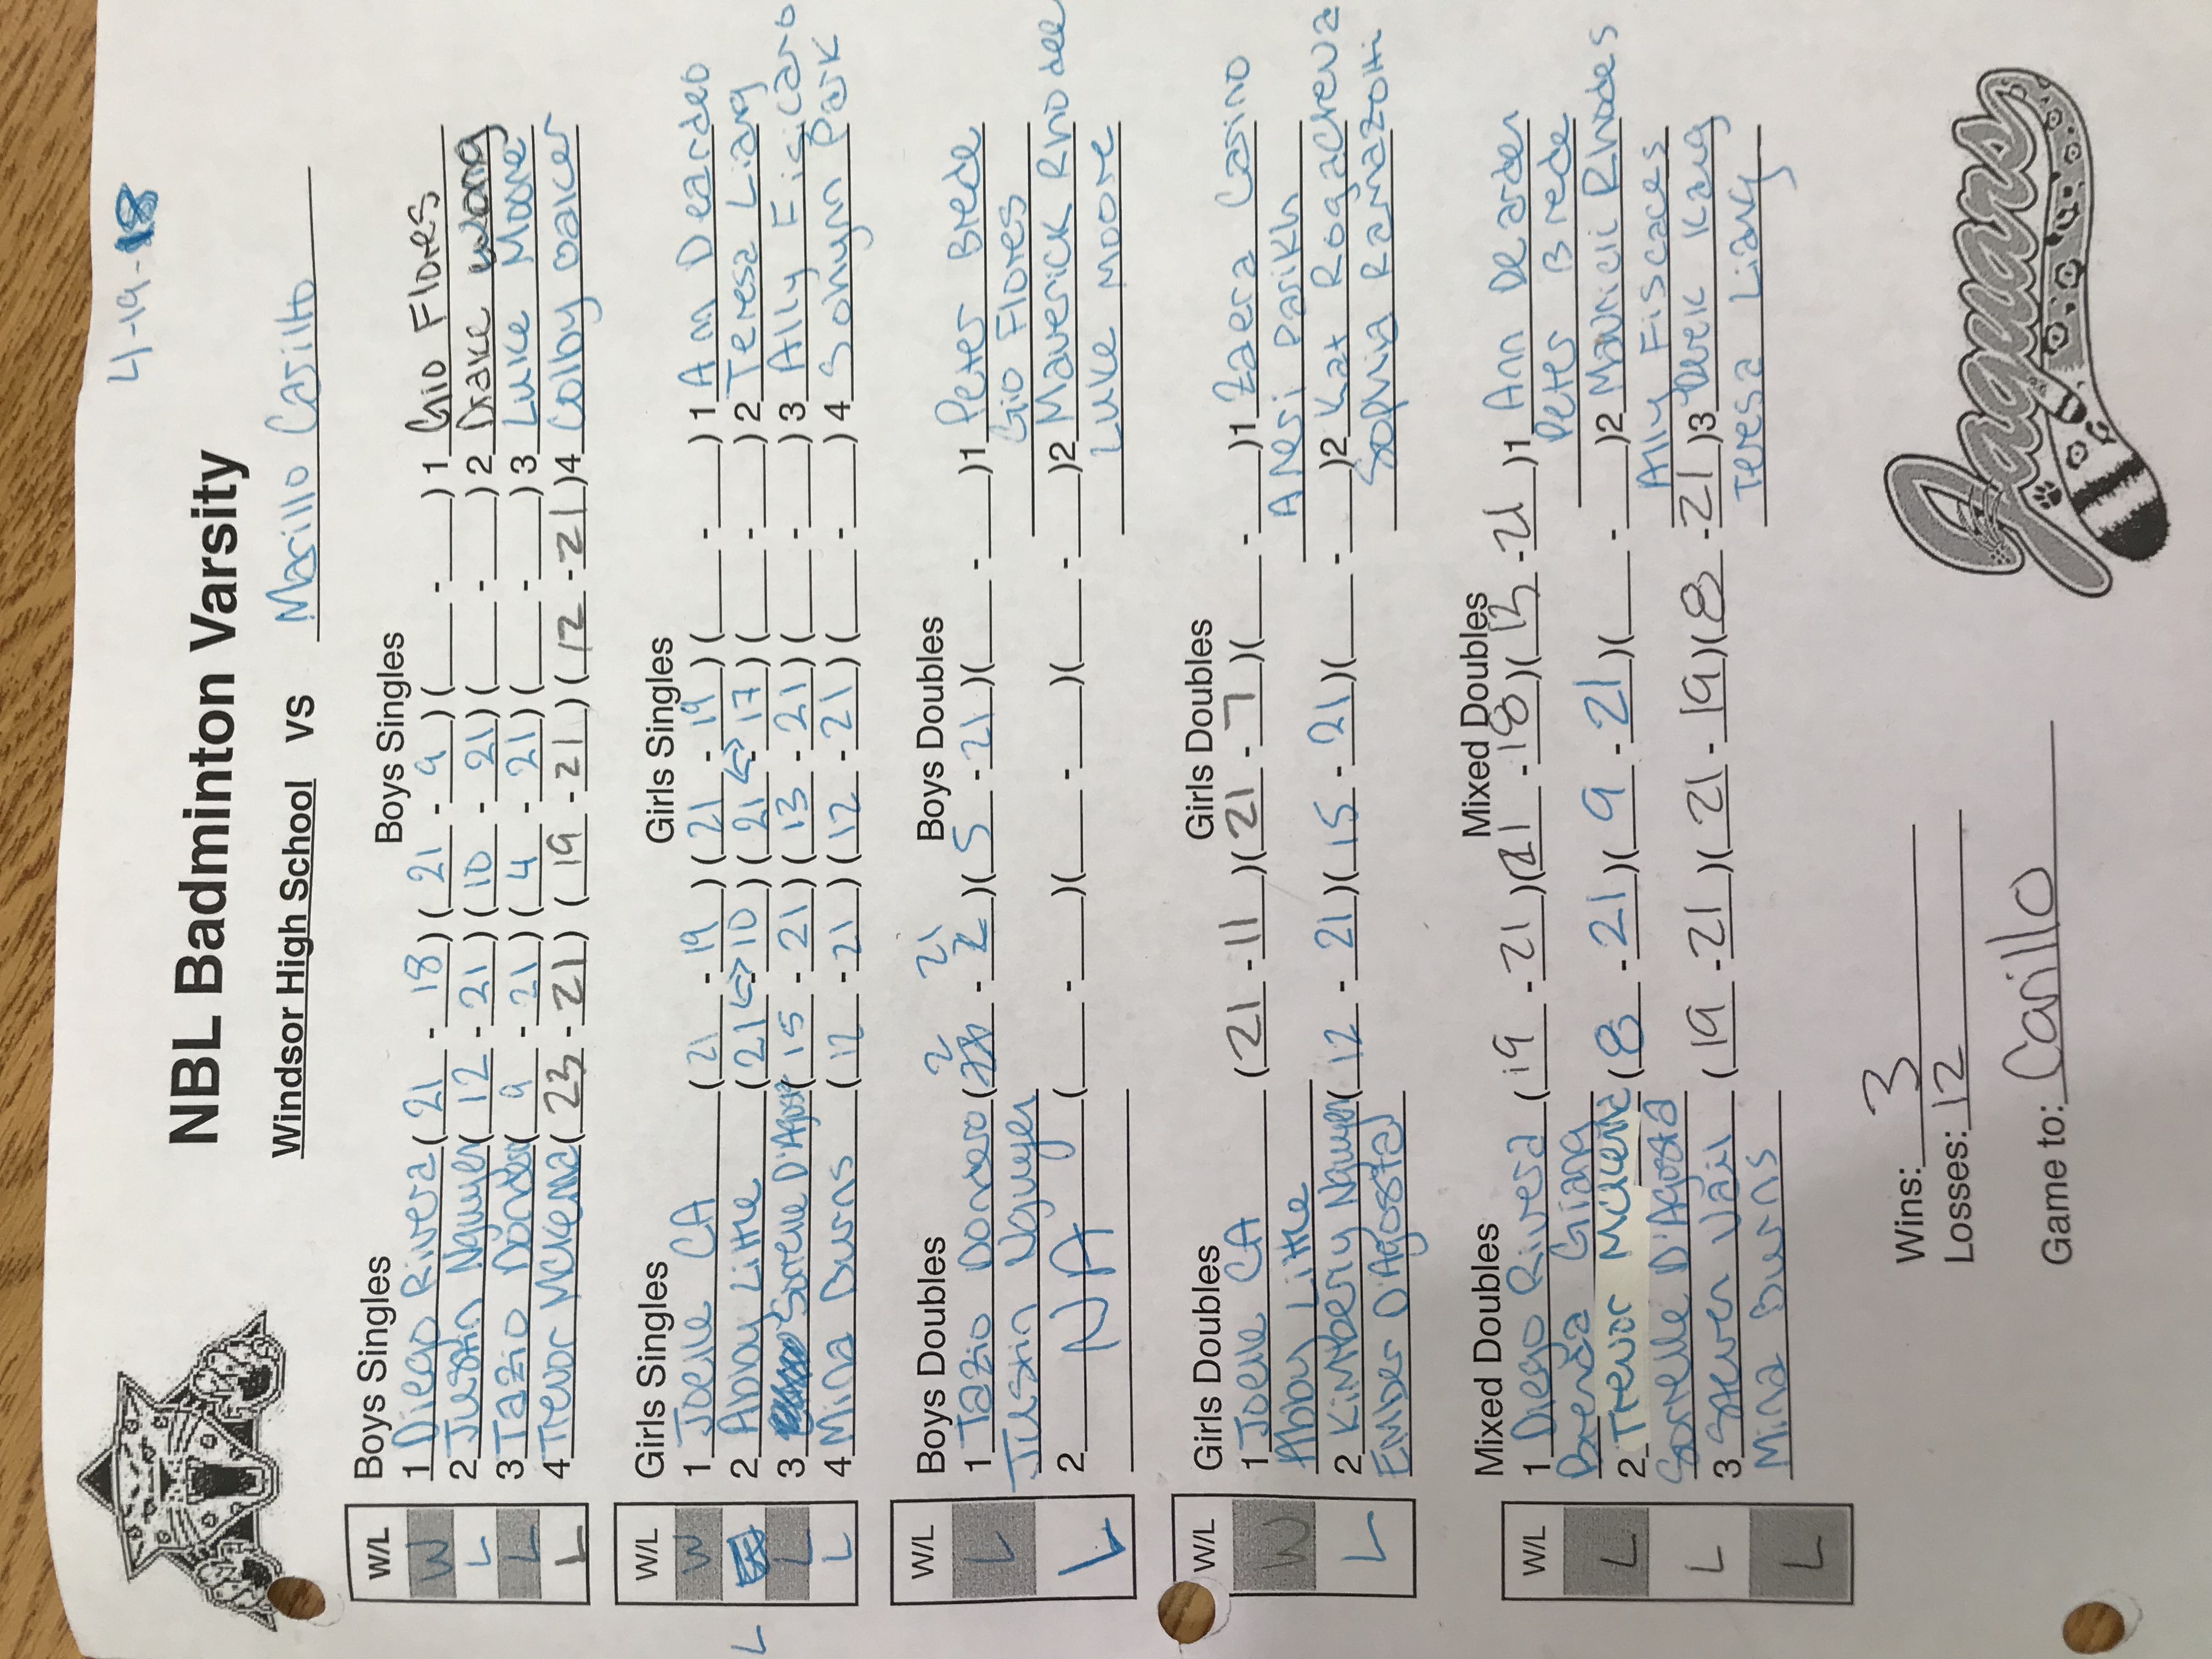 4-19-18
NBL Badminton Varsity
Windsor High School vs Marillo Carillo
Boys Singles Boys Singles
W/L
W 1 Diego Rivera (21 - 18) (21 - 9) (___ - ___) 1 Gio Flores
L 2 Justin Nguyen (12 - 21) (10 - 21) (___ - ___) 2 Drake Wong
L 3 Tazio (9 - 21) (4 - 21) (___ - ___) 3 Luke Moore
L 4 Trevor McKenna (23 - 21) (19 - 21) (12 - 21) 4 Colby
Girls Singles Girls Singles
W/L
W 1 Joelle CA (21 - 19) (21 - 19) (___ - ___) 1 Ann Deardeo
L 2 Abby Little (21 <-> 10) (21 <-> 17) (___ - ___) 2 Teresa Liang
L 3 Sorelle D'Agost (15 - 21) (13 - 21) (___ - ___) 3 Ally Fiscaro
L 4 Mina Burns (12 - 21) (12 - 21) (___ - ___) 4 Sohyun Park
Boys Doubles Boys Doubles
W/L
2 21
L 1 Tazio (___ - 2) (5 - 21) (___ - ___) 1 Peter Brede
Justin Nguyen Gio Flores
L 2 N/A (___ - ___) (___ - ___) (___ - ___) 2 Maverick Rhodes
Luke Moore
Girls Doubles Girls Doubles
W/L
W 1 Joelle CA (21 - 11) (21 - 7) (___ - ___) 1 Zaera Casino
Abby Little Anesi Parikh
L 2 Kimbery Nguyen (12 - 21) (15 - 21) (___ - ___) 2 Kat Rogacheva
Ember D'Agosta Sophia Ramazotti
Mixed Doubles Mixed Doubles
W/L
L 1 Diego Rivera (19 - 21) (21 - 18) (13 - 21) 1 Ann Dearden
Brenda Giang Peter Brede
L 2 Trevor McKenna (8 - 21) (9 - 21) (___ - ___) 2 Mauricii Rhodes
Sorelle D'Agosta Ally Fiscaes
L 3 Steven Vail (19 - 21) (21 - 19) (8 - 21) 3 Derek Kang
Mina Burns Teresa Liang
Wins: 3
Losses: 12
Game to: Carillo
Jaguars